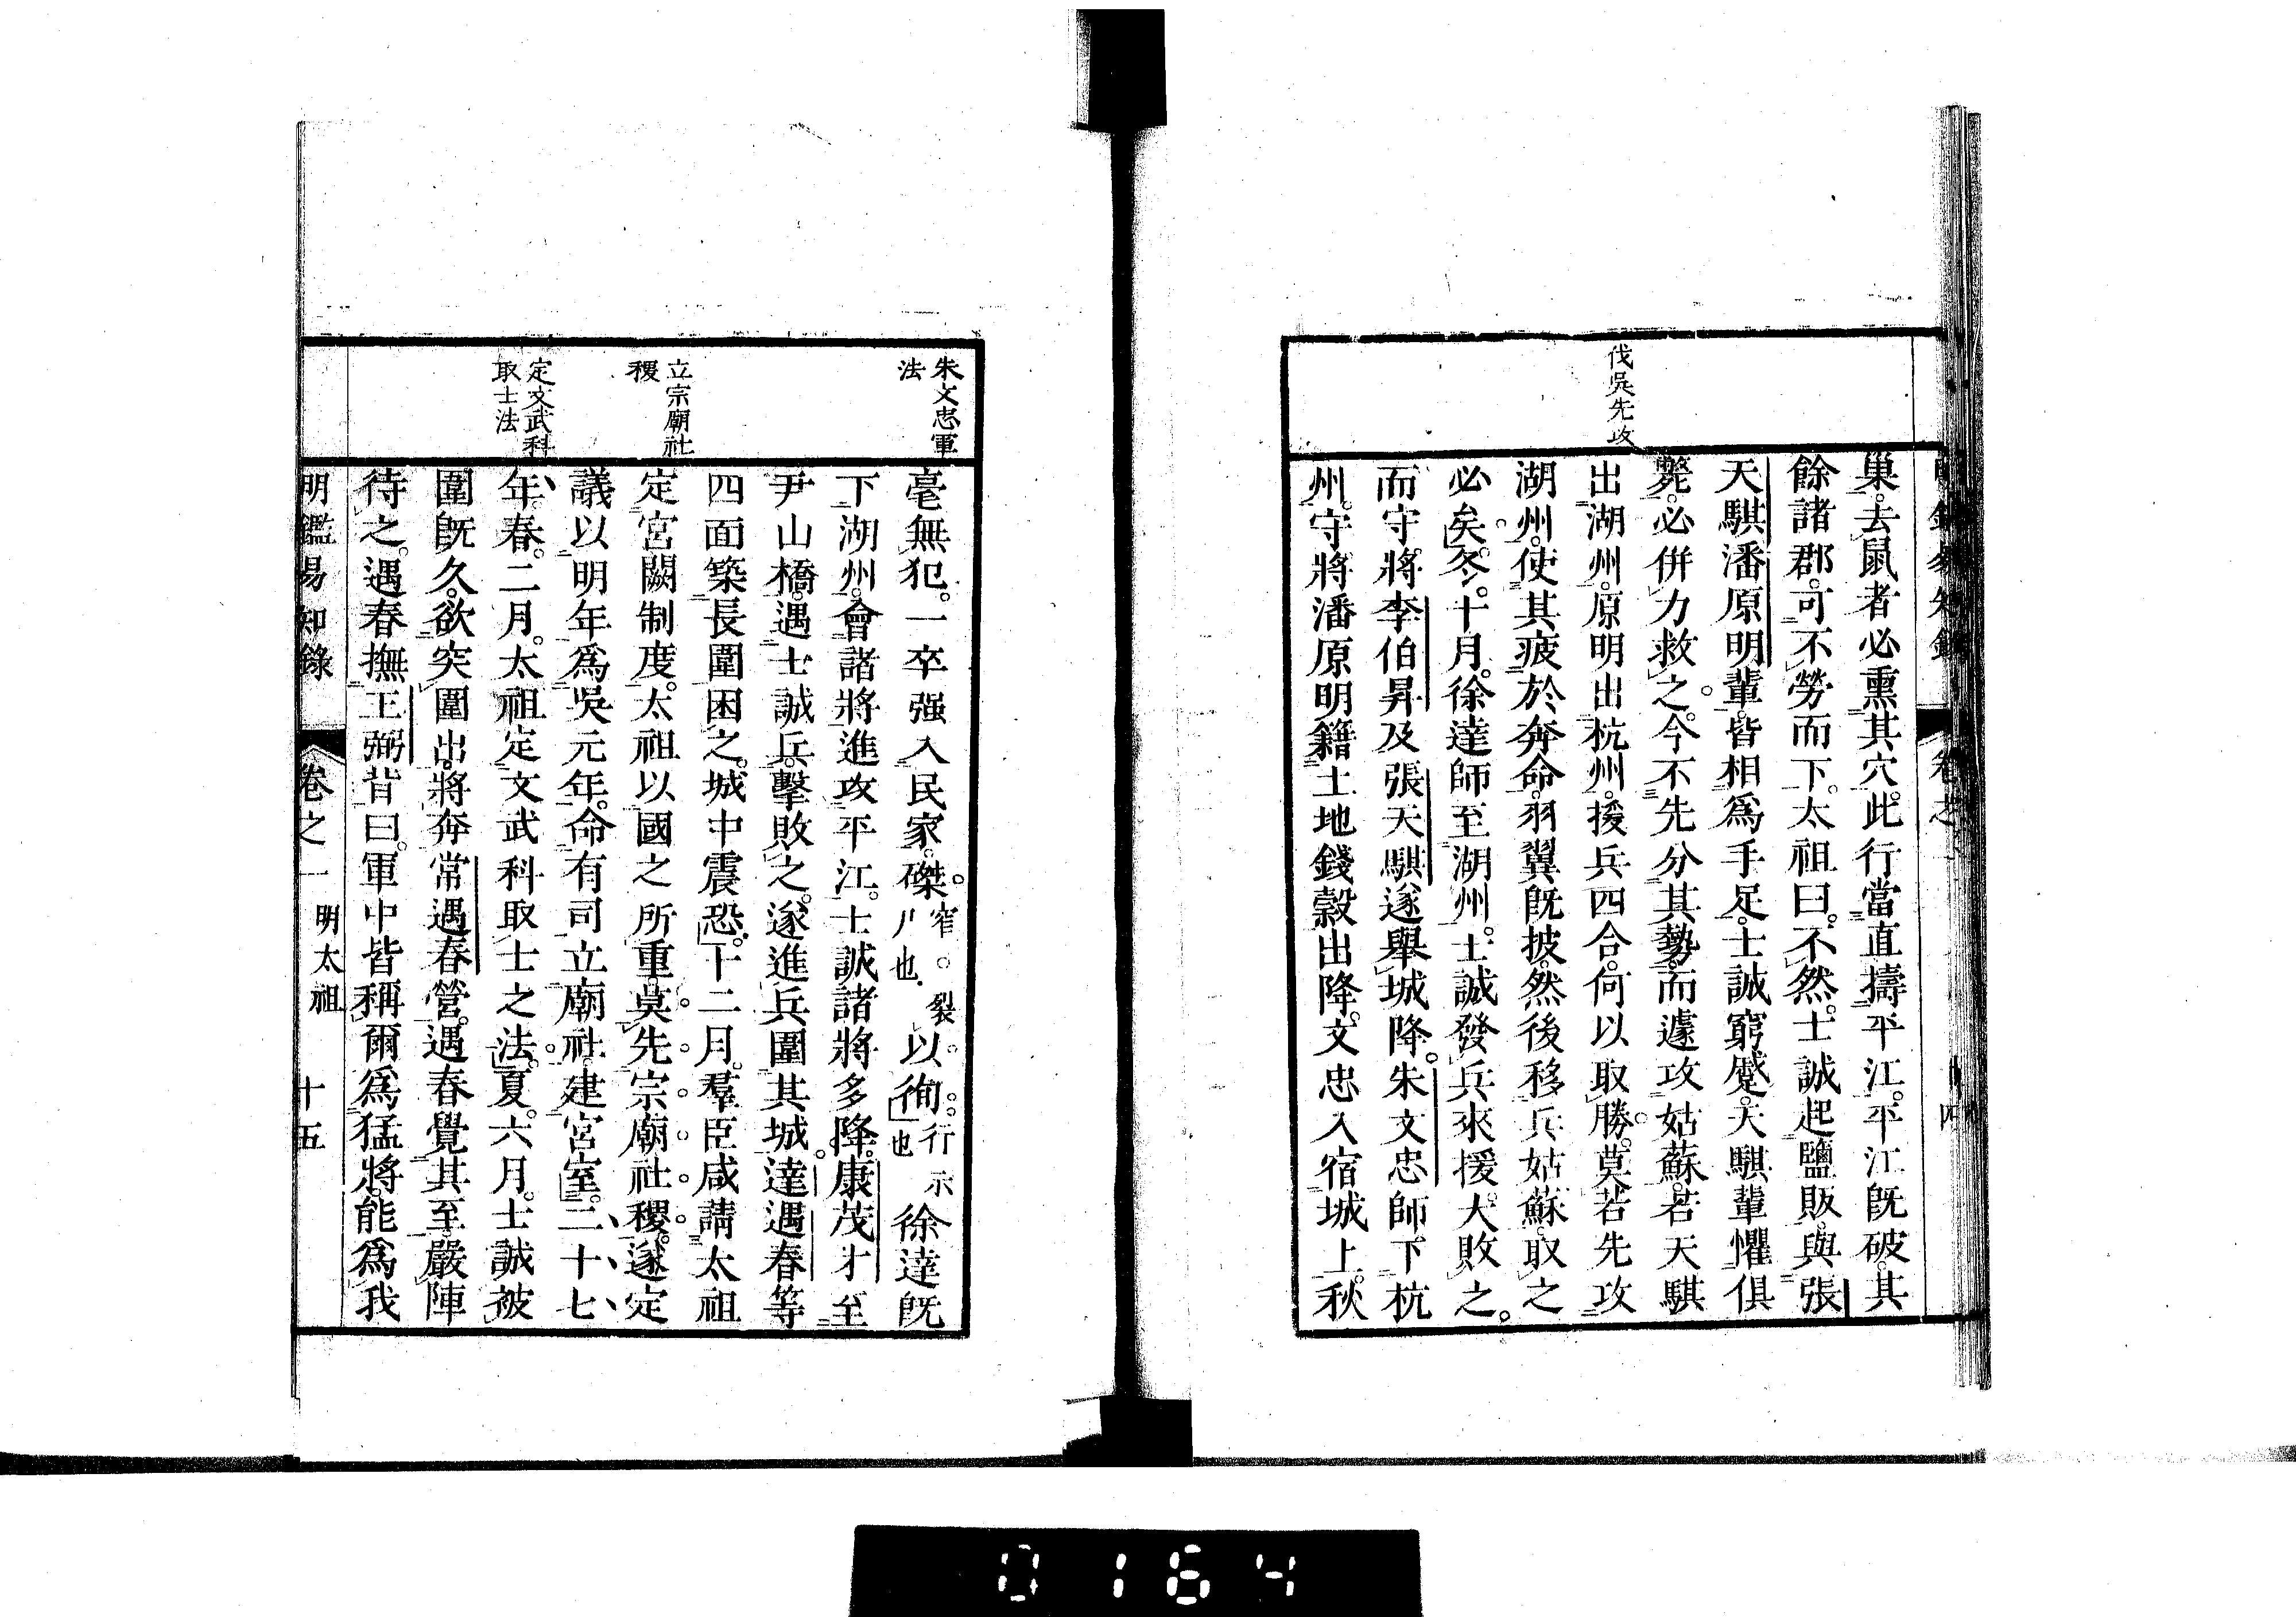 伐吳先攻
巢。去鼠者必熏其穴。此行當直擣平江。平江既破。其
餘諸郡。可不勞而下。太祖曰。不然。士誠起鹽販。與張
天騏潘原明輩。皆相爲手足。士誠窮蹙。天騏輩懼俱
斃。必併力救之。今不先分其勢。而遽攻姑蘇。若天騏
出湖州。原明出杭州。援兵四合。何以取勝。莫若先攻
湖州。使其疲於奔命。羽翼既披。然後移兵姑蘇。取之
必矣。冬。十月。徐達師至湖州。士誠發兵來援。大敗之。
而守將李伯昇及張天騏遂舉城降。朱文忠師下杭
州。守將潘原明籍土地錢穀出降。文忠入宿城上。秋
朱文忠軍
法
立宗廟社
稷
定文武科
取士法
毫無犯。一卒强入民家。磔窄。裂也。以徇行示也徐達既
下湖州。會諸將進攻平江。士誠諸將多降。康茂才至
尹山橋。遇士誠兵。擊敗之。遂進兵圍其城。達遇春等
四面築長圍困之。城中震恐。十二月。羣臣咸請太祖
定宮闕制度。太祖以國之所重。莫先宗廟社稷。遂定
議以明年爲吳元年。命有司立廟社。建宮室。二十七
年。春。二月。太祖定文武科取士之法。夏。六月。士誠被
圍既久。欲突圍出。將奔常遇春營。遇春覺其至。嚴陣
待之。遇春撫王弼背曰。軍中皆稱爾爲猛將。能爲我
明鑑易知錄 卷之一 明太祖 十五
0164